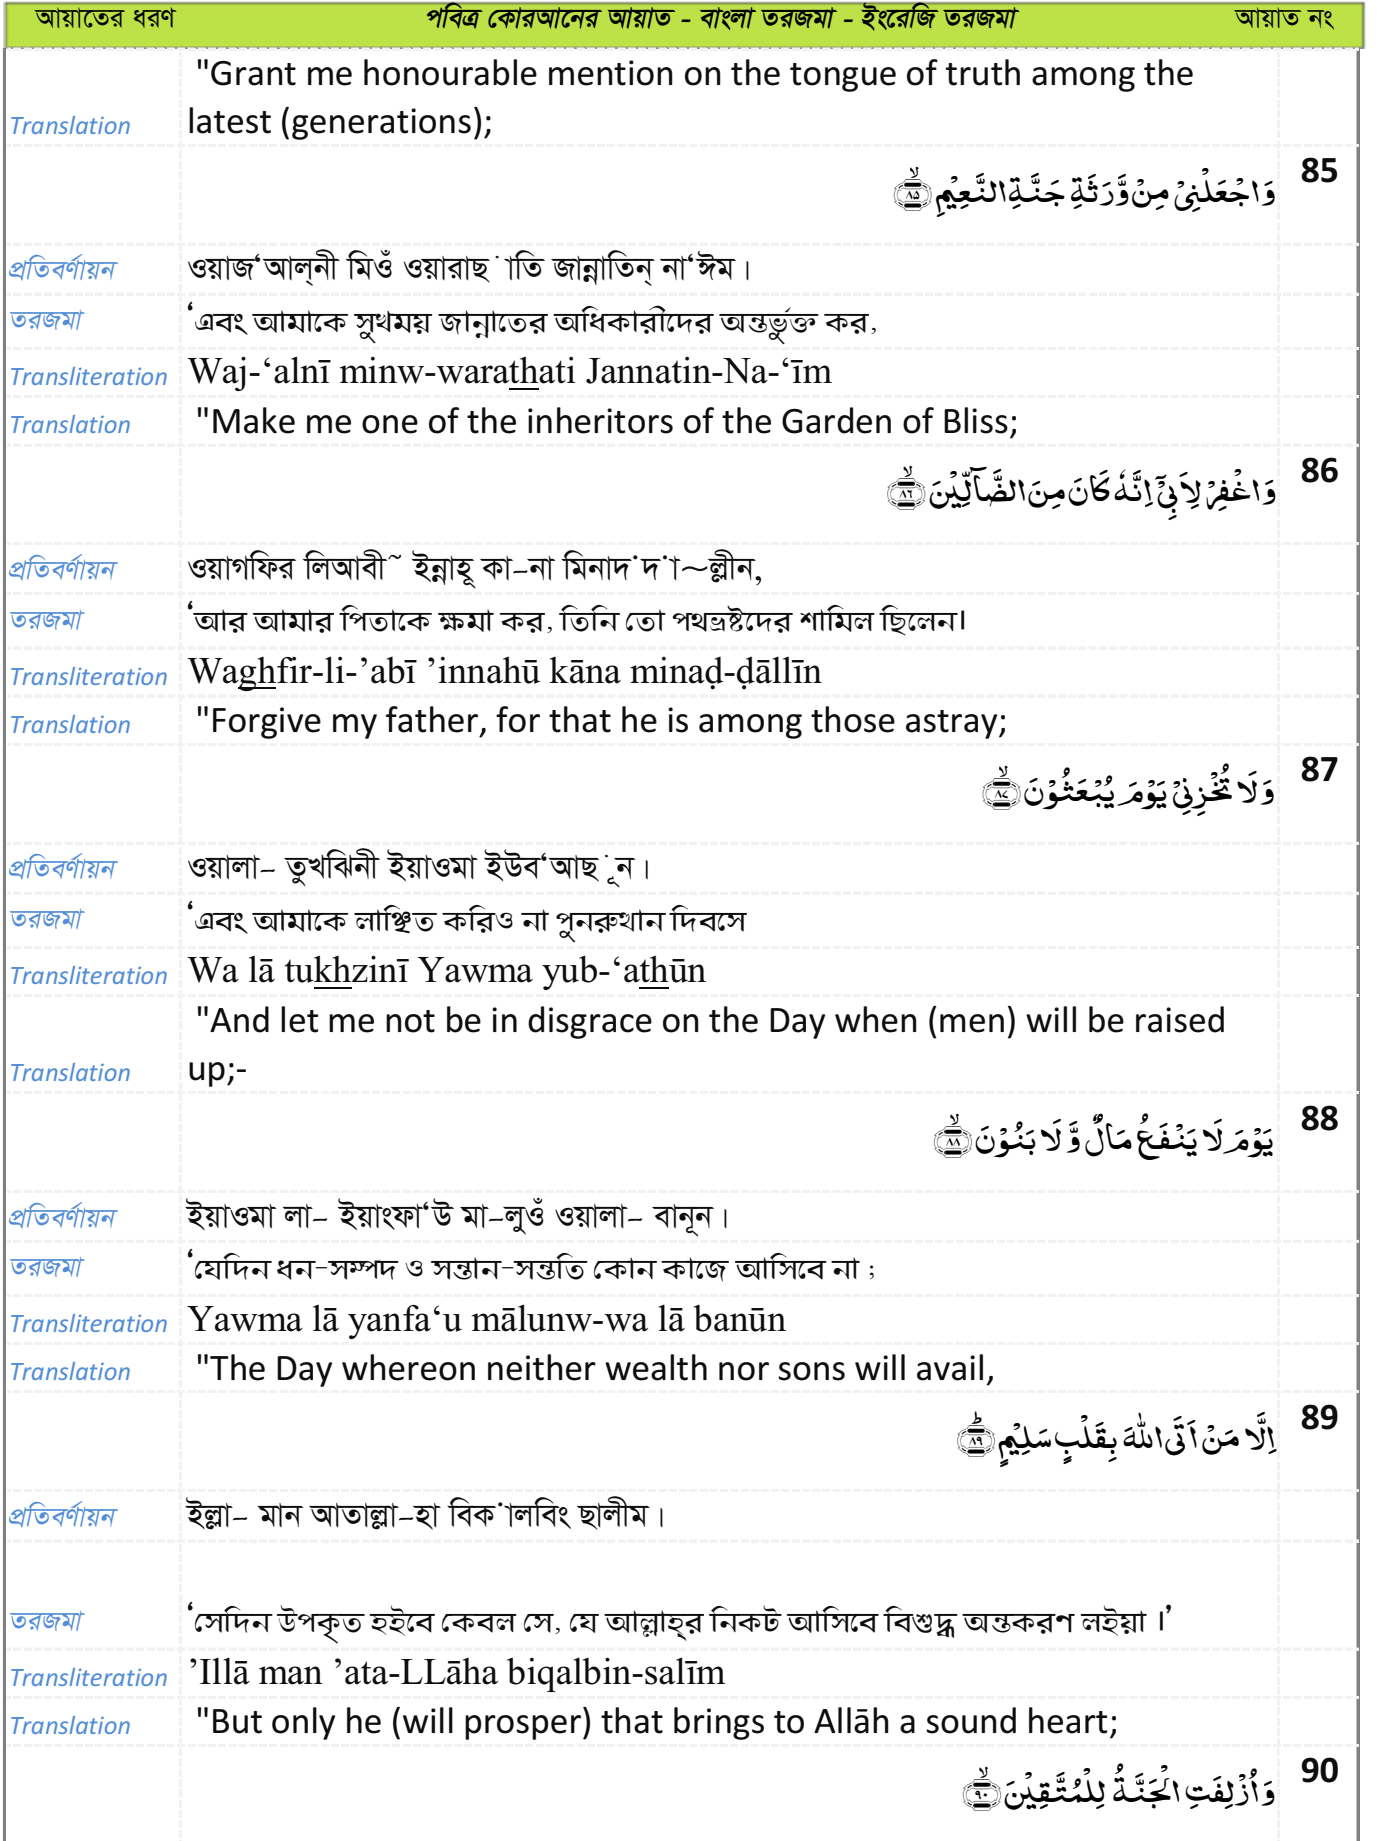 আয়াতের ধরণ পবিত্র কোরআনের আয়াত - বাংলা তরজমা - ইংরেজি তরজমা আয়াত নং
"Grant me honourable mention on the tongue of truth among the
Translation latest (generations);
85
وَاجْعَلْنِیْ مِنْ وَّرَثَةِ جَنَّةِ النَّعِیْمِ ۙ﴿۸۵﴾
প্রতিবর্ণায়ন ওয়াজ‘আল্‌নী মিওঁ ওয়ারাছ াতি জান্নাতিন্ না‘ঈম।
তরজমা ‘এবং আমাকে সুখময় জান্নাতের অধিকারীদের অন্তর্ভুক্ত কর,
Transliteration Waj-‘alnī minw-warathati Jannatin-Na-‘īm
Translation "Make me one of the inheritors of the Garden of Bliss;
86
وَاغْفِرْ لِاَبِیْۤ اِنَّهٗ كَانَ مِنَ الضَّآلِّیْنَ ۙ﴿۸۶﴾
প্রতিবর্ণায়ন ওয়াগফির লিআবী~ ইন্নাহূ কা–না মিনাদ˙দ˙া~ল্লীন,
তরজমা ‘আর আমার পিতাকে ক্ষমা কর, তিনি তো পথভ্রষ্টদের শামিল ছিলেন।
Transliteration Waghfir-li-’abī ’innahū kāna minaḍ-ḍāllīn
Translation "Forgive my father, for that he is among those astray;
87
وَلَا تُخْزِنِیْ یَوْمَ یُبْعَثُوْنَ ۙ﴿۸۷﴾
প্রতিবর্ণায়ন ওয়ালা– তুখঝিনী ইয়াওমা ইউব‘আছ ূন।
তরজমা ‘এবং আমাকে লাঞ্ছিত করিও না পুনরুত্থান দিবসে
Transliteration Wa lā tukhzinī Yawma yub-‘athūn
"And let me not be in disgrace on the Day when (men) will be raised
Translation up;-
88
یَوْمَ لَا یَنْفَعُ مَالٌ وَّلَا بَنُوْنَ ۙ﴿۸۸﴾
প্রতিবর্ণায়ন ইয়াওমা লা– ইয়াংফা‘উ মা–লুওঁ ওয়ালা– বানূন।
তরজমা ‘যেদিন ধন-সম্পদ ও সন্তান-সন্ততি কোন কাজে আসিবে না ;
Transliteration Yawma lā yanfa‘u mālunw-wa lā banūn
Translation "The Day whereon neither wealth nor sons will avail,
89
اِلَّا مَنْ اَتَی اللّٰهَ بِقَلْبٍ سَلِیْمٍ ؕ﴿۸۹﴾
প্রতিবর্ণায়ন ইল্লা– মান আতাল্লা–হা বিক˙ালবিং ছালীম।
তরজমা ‘সেদিন উপকৃত হইবে কেবল সে, যে আল্লাহ্‌র নিকট আসিবে বিশুদ্ধ অন্তকরণ লইয়া।’
Transliteration ’Illā man ’ata-LLāha biqalbin-salīm
Translation "But only he (will prosper) that brings to Allāh a sound heart;
90
وَاُزْلِفَتِ الْجَنَّةُ لِلْمُتَّقِیْنَ ۙ﴿۹۰﴾